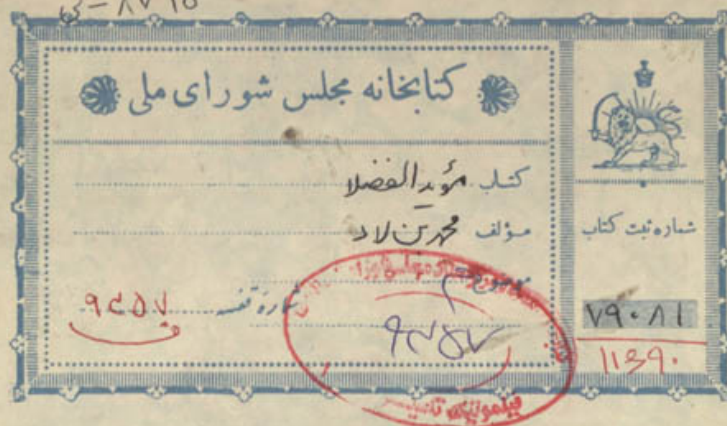 کتابخانه مجلس شورای ملی
کتاب مؤید الفضلا
مؤلف محمد بن لاد
موضوع
شماره قفسه ۹۴۵۷
۹۴۵۷
شماره ثبت کتاب
۷۹۰۸۱
۱۱۳۹۰